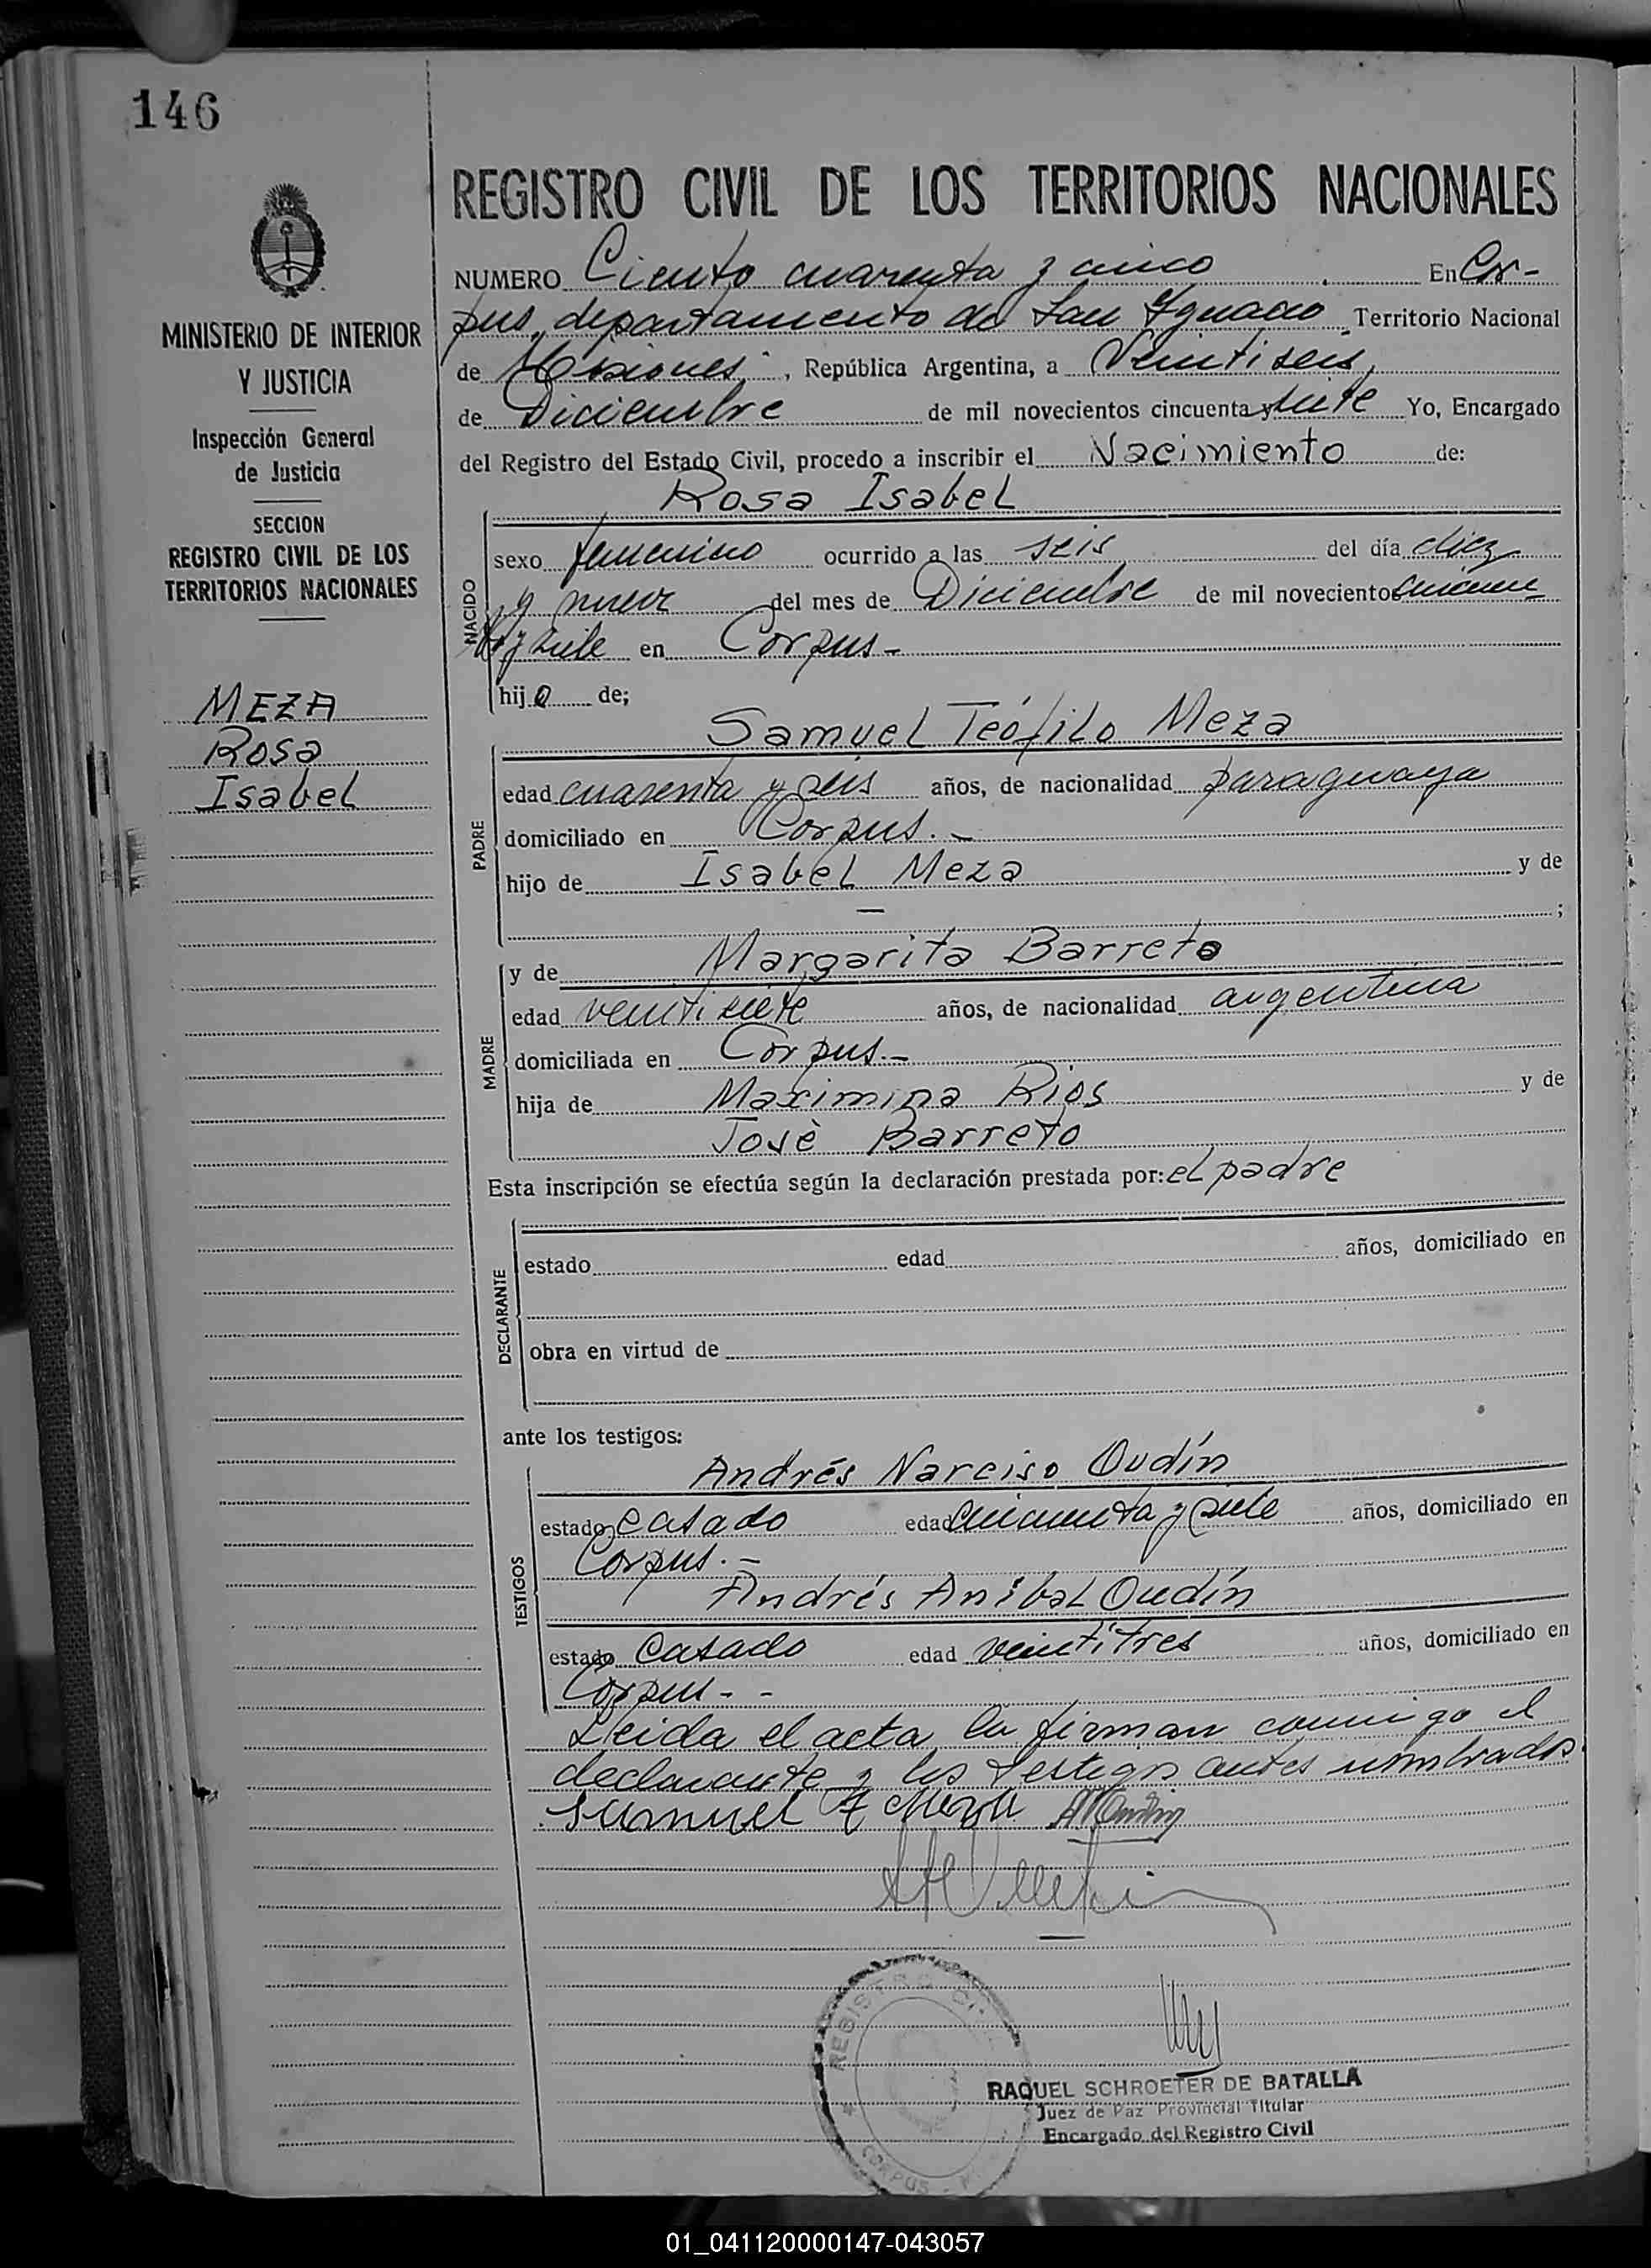 146
REGISTRO CIVIL DE LOS TERRITORIOS NACIONALES
MINISTERIO DE INTERIOR
Y JUSTICIA
Inspección General
de Justicia
SECCION
REGISTRO CIVIL DE LOS
TERRITORIOS NACIONALES
MEZA
Rosa
Isabel
NUMERO Ciento cuarenta y cinco. En Cor-
pus, departamento de San Ignacio Territorio Nacional
de Misiones, República Argentina, a Veintiseis,
de Diciembre de mil novecientos cincuenta y siete Yo, Encargado
del Registro del Estado Civil, procedo a inscribir el Nacimiento de:
Rosa Isabel
NACIDO
sexo femenino ocurrido a las seis del día diez
y nueve del mes de Diciembre de mil novecientos cincuen
ta y siete en Corpus-
hija de;
Samuel Teófilo Meza
PADRE
edad cuarenta y seis años, de nacionalidad paraguaya
domiciliado en Corpus.-
hijo de Isabel Meza y de
— ;
MADRE
y de Margarita Barreto
edad veintisiete años, de nacionalidad argentina
domiciliada en Corpus.-
hija de Maximina Rios y de
Josè Barreto
Esta inscripción se efectúa según la declaración prestada por: el padre
DECLARANTE
estado edad años, domiciliado en
obra en virtud de
ante los testigos:
Andrés Narciso Oudín
TESTIGOS
estado casado edad cincuenta y siete años, domiciliado en
Corpus.-
Andrés Anibal Oudín
estado Casado edad veintitres años, domiciliado en
Corpus--
Leida el acta, la firman conmigo el
declarante y los testigos antes nombrados.
Samuel T Meza
REGISTRO CI
CORPUS
RAQUEL SCHROETER DE BATALLA
Juez de Paz Provincial Titular
Encargado del Registro Civil
01_041120000147-043057